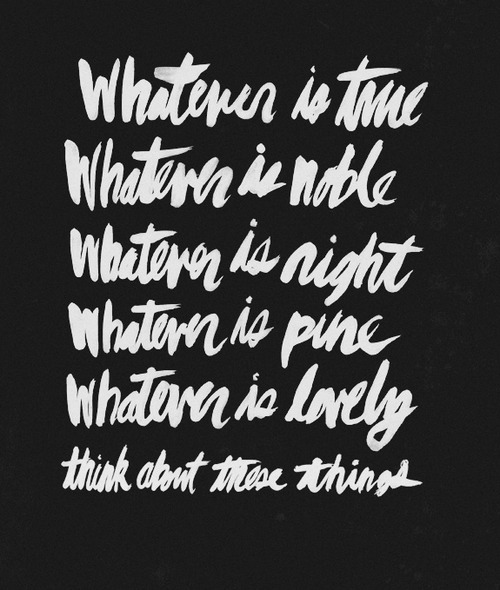 Whatever is true
Whatever is noble
Whatever is right
Whatever is pure
Whatever is lovely
think about these things